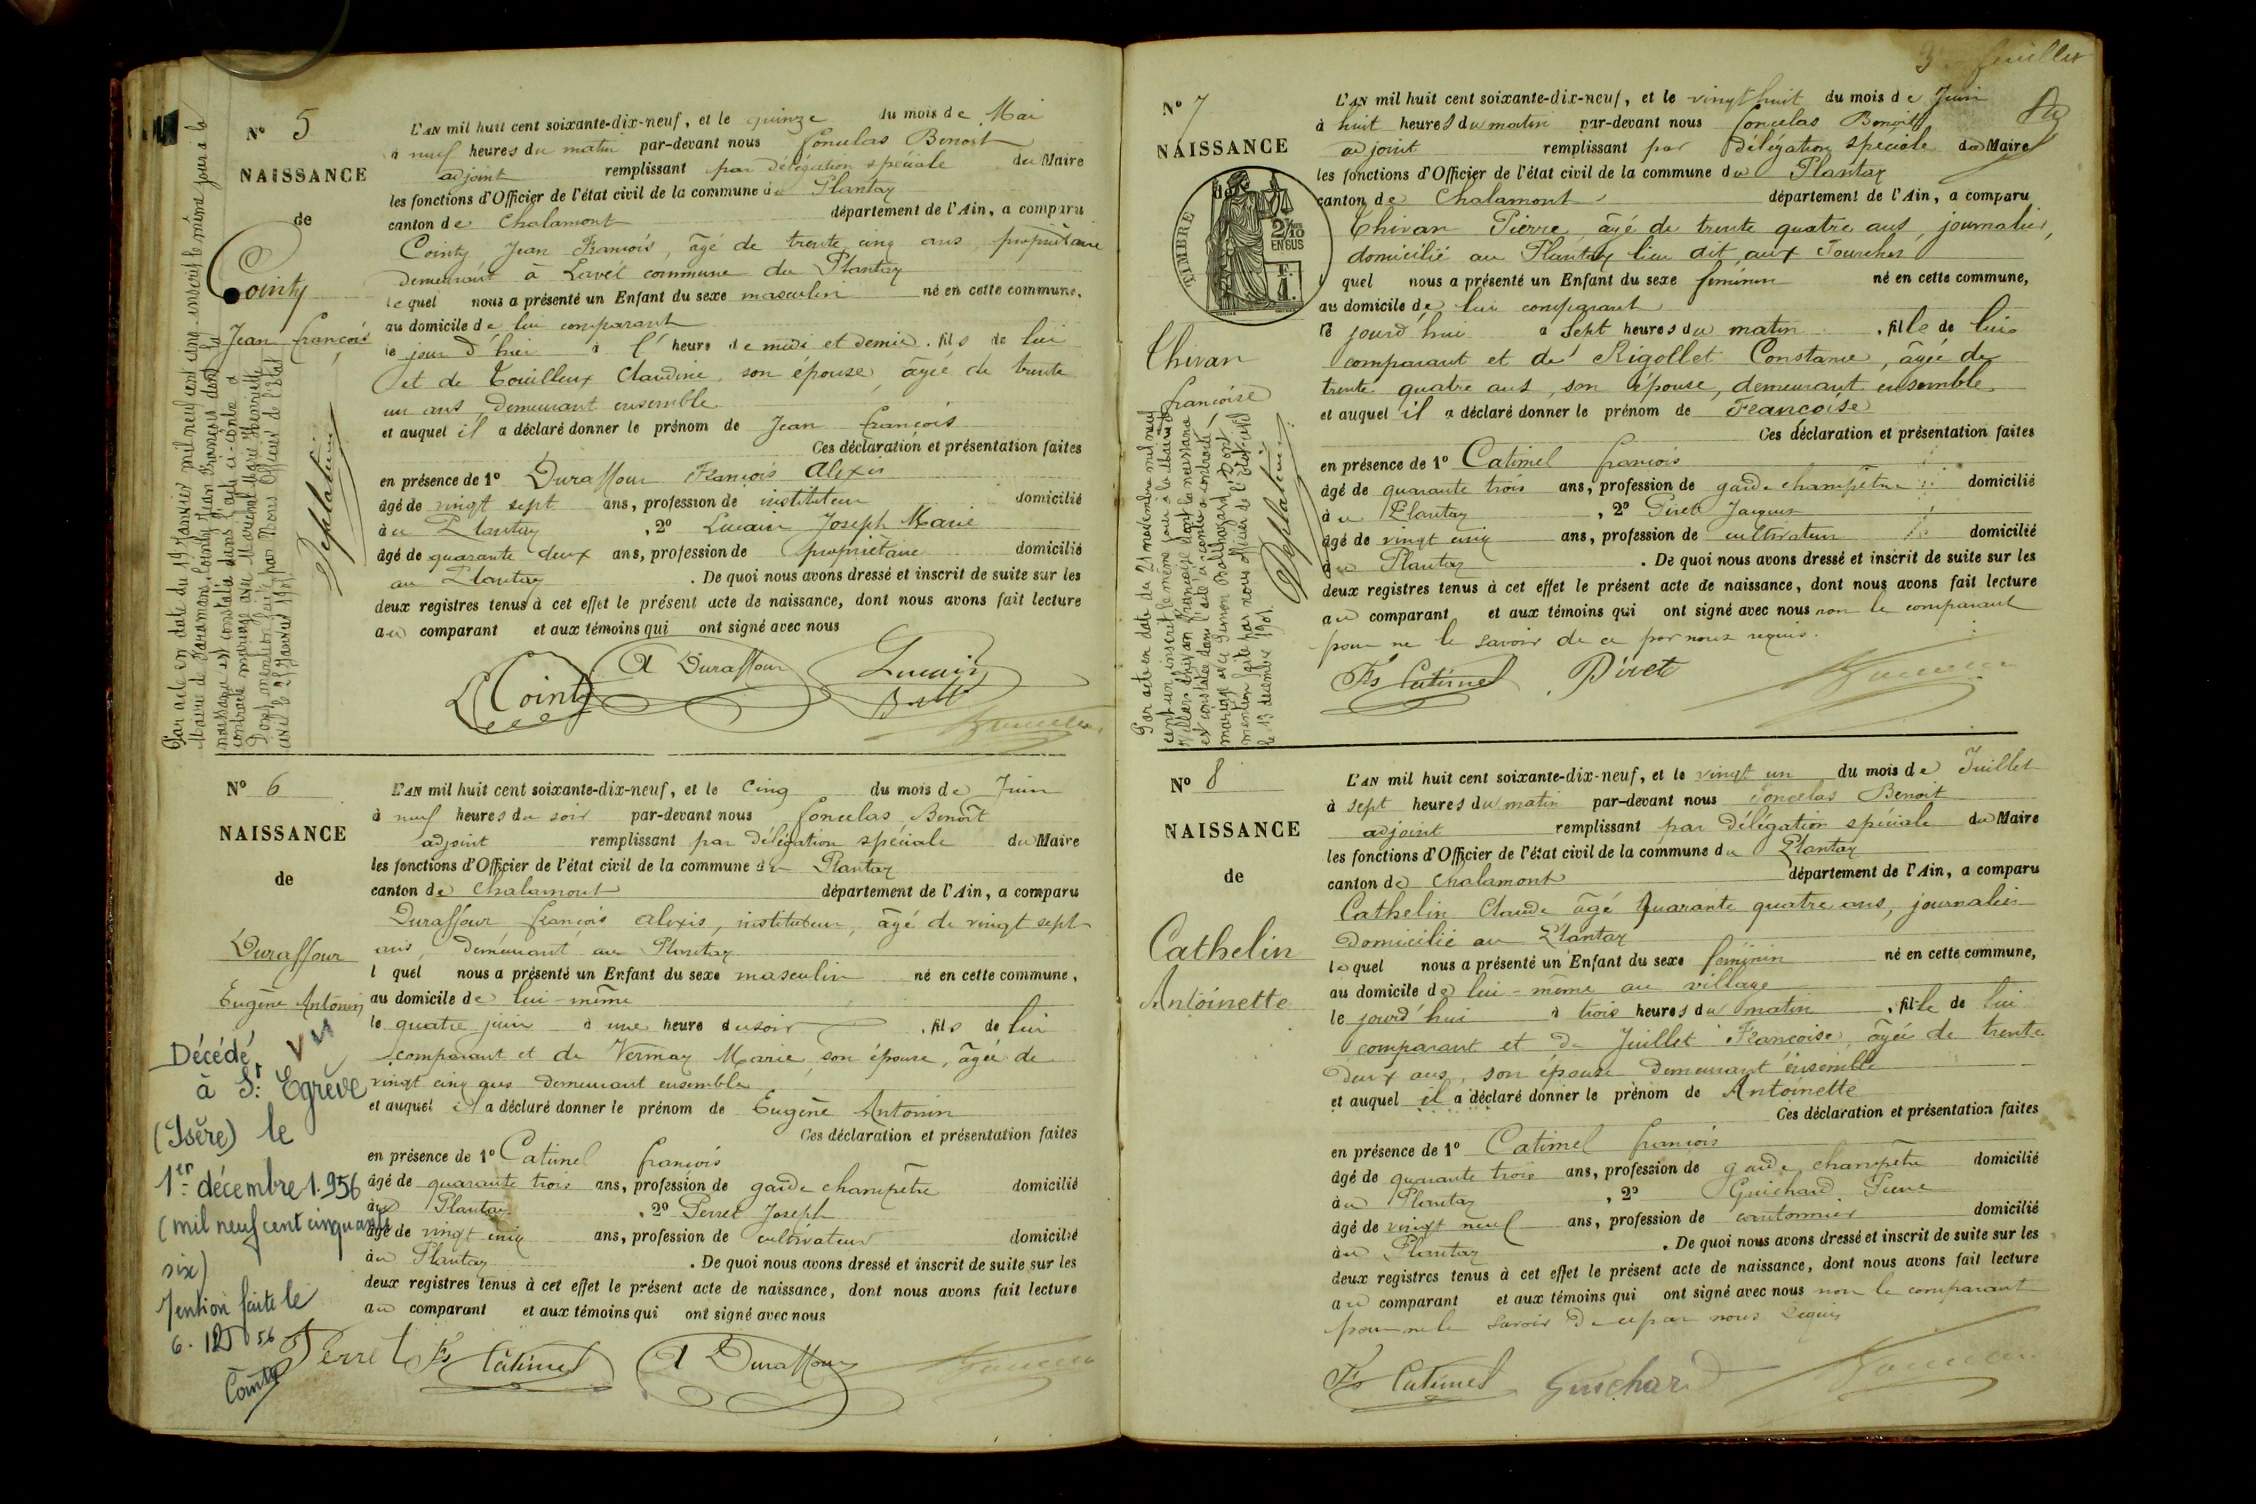 N° 5
NAISSANCE
de
Cointy
Jean François
L'AN mil huit cent soixante-dix-neuf, et le quinze du mois de Mai
à neuf heures du matin par-devant nous Foncelas Benoit
adjoint remplissant par délégation spéciale du Maire
les fonctions d'Officier de l'état civil de la commune du Plantay
canton de Chalamont département de l'Ain, a comparu
Cointy Jean François, âgé de trente cinq ans, propriétaire
demeurant à Lavet commune du Plantay
lequel nous a présenté un Enfant du sexe masculin né en cette commune,
au domicile de lui comparant
le jour d'hier à l' heure de midi et demie. fils de lui
et de Touilleux Claudine, son épouse, âgée de trente
un ans, demeurant ensemble
et auquel il a déclaré donner le prénom de Jean François
Ces déclaration et présentation faites
en présence de 1° Duraffour François Alexis
âgé de vingt sept ans, profession de instituteur domicilié
au Plantay, 2° Lucain Joseph Marie
âgé de quarante deux ans, profession de propriétaire domicilié
au Plantay. De quoi nous avons dressé et inscrit de suite sur les
deux registres tenus à cet effet le présent acte de naissance, dont nous avons fait lecture
au comparant et aux témoins qui ont signé avec nous
Cointy A Duraffour Lucain
Par acte en date du 19 Janvier mil neuf cent cinq inscrit le même jour à la
Mairie de Cointy Jean François dont la
naissance est constatée dans l'acte ci-contre a
contracté mariage avec Marie Henriette
Dont mention faite par Nous Officier de l'Etat
civil le 25 Janvier 1905
N° 6
NAISSANCE
de
Duraffour
Eugène Antonin
L'AN mil huit cent soixante-dix-neuf, et le cinq du mois de Juin
à neuf heures du soir par-devant nous Foncelas Benoît
adjoint remplissant par délégation spéciale du Maire
les fonctions d'Officier de l'état civil de la commune du Plantay
canton de Chalamont département de l'Ain, a comparu
Duraffour François Alexis, instituteur, âgé de vingt sept
ans, demeurant au Plantay
l quel nous a présenté un Enfant du sexe masculin né en cette commune,
au domicile de lui-même
le quatre juin à une heure du soir. fils de lui
comparant et de Vermay Marie, son épouse, âgée de
vingt cinq ans demeurant ensemble
et auquel il a déclaré donner le prénom de Eugène Antonin
Ces déclaration et présentation faites
en présence de 1° Catimel François
âgé de quarante trois ans, profession de garde champêtre domicilié
au Plantay, 2° Perret Joseph
âgé de vingt cinq ans, profession de cultivateur domicilié
au Plantay. De quoi nous avons dressé et inscrit de suite sur les
deux registres tenus à cet effet le présent acte de naissance, dont nous avons fait lecture
au comparant et aux témoins qui ont signé avec nous
Perret Fs Catimel A Duraffour
vu
Décédé
à St. Egrève
(Isère) le
1er décembre 1.956
(mil neuf cent cinquante
six)
Mention faite le
6. 12 56
Cointy
3e feuillet
N° 7
NAISSANCE
de
TIMBRE
2 1/2 10 EN SUS
Chivan
Françoise
L'AN mil huit cent soixante-dix-neuf, et le vingt huit du mois de Juin
à huit heures du matin par-devant nous Foncelas Benoit
adjoint remplissant par délégation spéciale du Maire
les fonctions d'Officier de l'état civil de la commune du Plantay
canton de Chalamont département de l'Ain, a comparu
Chivan Pierre, âgé de trente quatre ans, journalier,
domicilié au Plantay lieu dit aux Fourches
l quel nous a présenté un Enfant du sexe féminin né en cette commune,
au domicile de lui comparant
le jourd'hui à sept heures du matin. fille de lui
comparant et de Rigollet Constance, âgée de
trente quatre ans, son épouse, demeurant ensemble
et auquel il a déclaré donner le prénom de Françoise
Ces déclaration et présentation faites
en présence de 1° Catimel François
âgé de quarante trois ans, profession de garde champêtre domicilié
au Plantay, 2° Piret Jacques
âgé de vingt cinq ans, profession de cultivateur domicilié
au Plantay. De quoi nous avons dressé et inscrit de suite sur les
deux registres tenus à cet effet le présent acte de naissance, dont nous avons fait lecture
au comparant et aux témoins qui ont signé avec nous non le comparant
pour ne le savoir de ce par nous requis.
Fs Catimel Piret
Par acte en date du 21 novembre mil neuf
cent un, inscrit le même jour à la Mairie de
Villars Chivan Françoise dont la naissance
est constatée dans l'acte ci-contre a contracté
mariage avec Balthazard. Dont
mention faite par nous officier de l'Etat-civil
le 13 décembre 1901.
N° 8
NAISSANCE
de
Cathelin
Antoinette
L'AN mil huit cent soixante-dix-neuf, et le vingt un du mois de Juillet
à sept heures du matin par-devant nous Foncelas Benoit
adjoint remplissant par délégation spéciale du Maire
les fonctions d'Officier de l'état civil de la commune du Plantay
canton de Chalamont département de l'Ain, a comparu
Cathelin Claude âgé quarante quatre ans, journalier
domicilié au Plantay
lequel nous a présenté un Enfant du sexe féminin né en cette commune,
au domicile de lui-même au village
le jourd'hui à trois heures du matin, fille de lui
comparant et de Juillet Françoise, âgée de trente
deux ans, son épouse demeurant ensemble
et auquel il a déclaré donner le prénom de Antoinette
Ces déclaration et présentation faites
en présence de 1° Catimel François
âgé de quarante trois ans, profession de garde champêtre domicilié
au Plantay, 2° Guichard Pierre
âgé de vingt neuf ans, profession de cantonnier domicilié
au Plantay. De quoi nous avons dressé et inscrit de suite sur les
deux registres tenus à cet effet le présent acte de naissance, dont nous avons fait lecture
au comparant et aux témoins qui ont signé avec nous non le comparant
pour ne le savoir de ce par nous requis
Fs Catimel Guichard